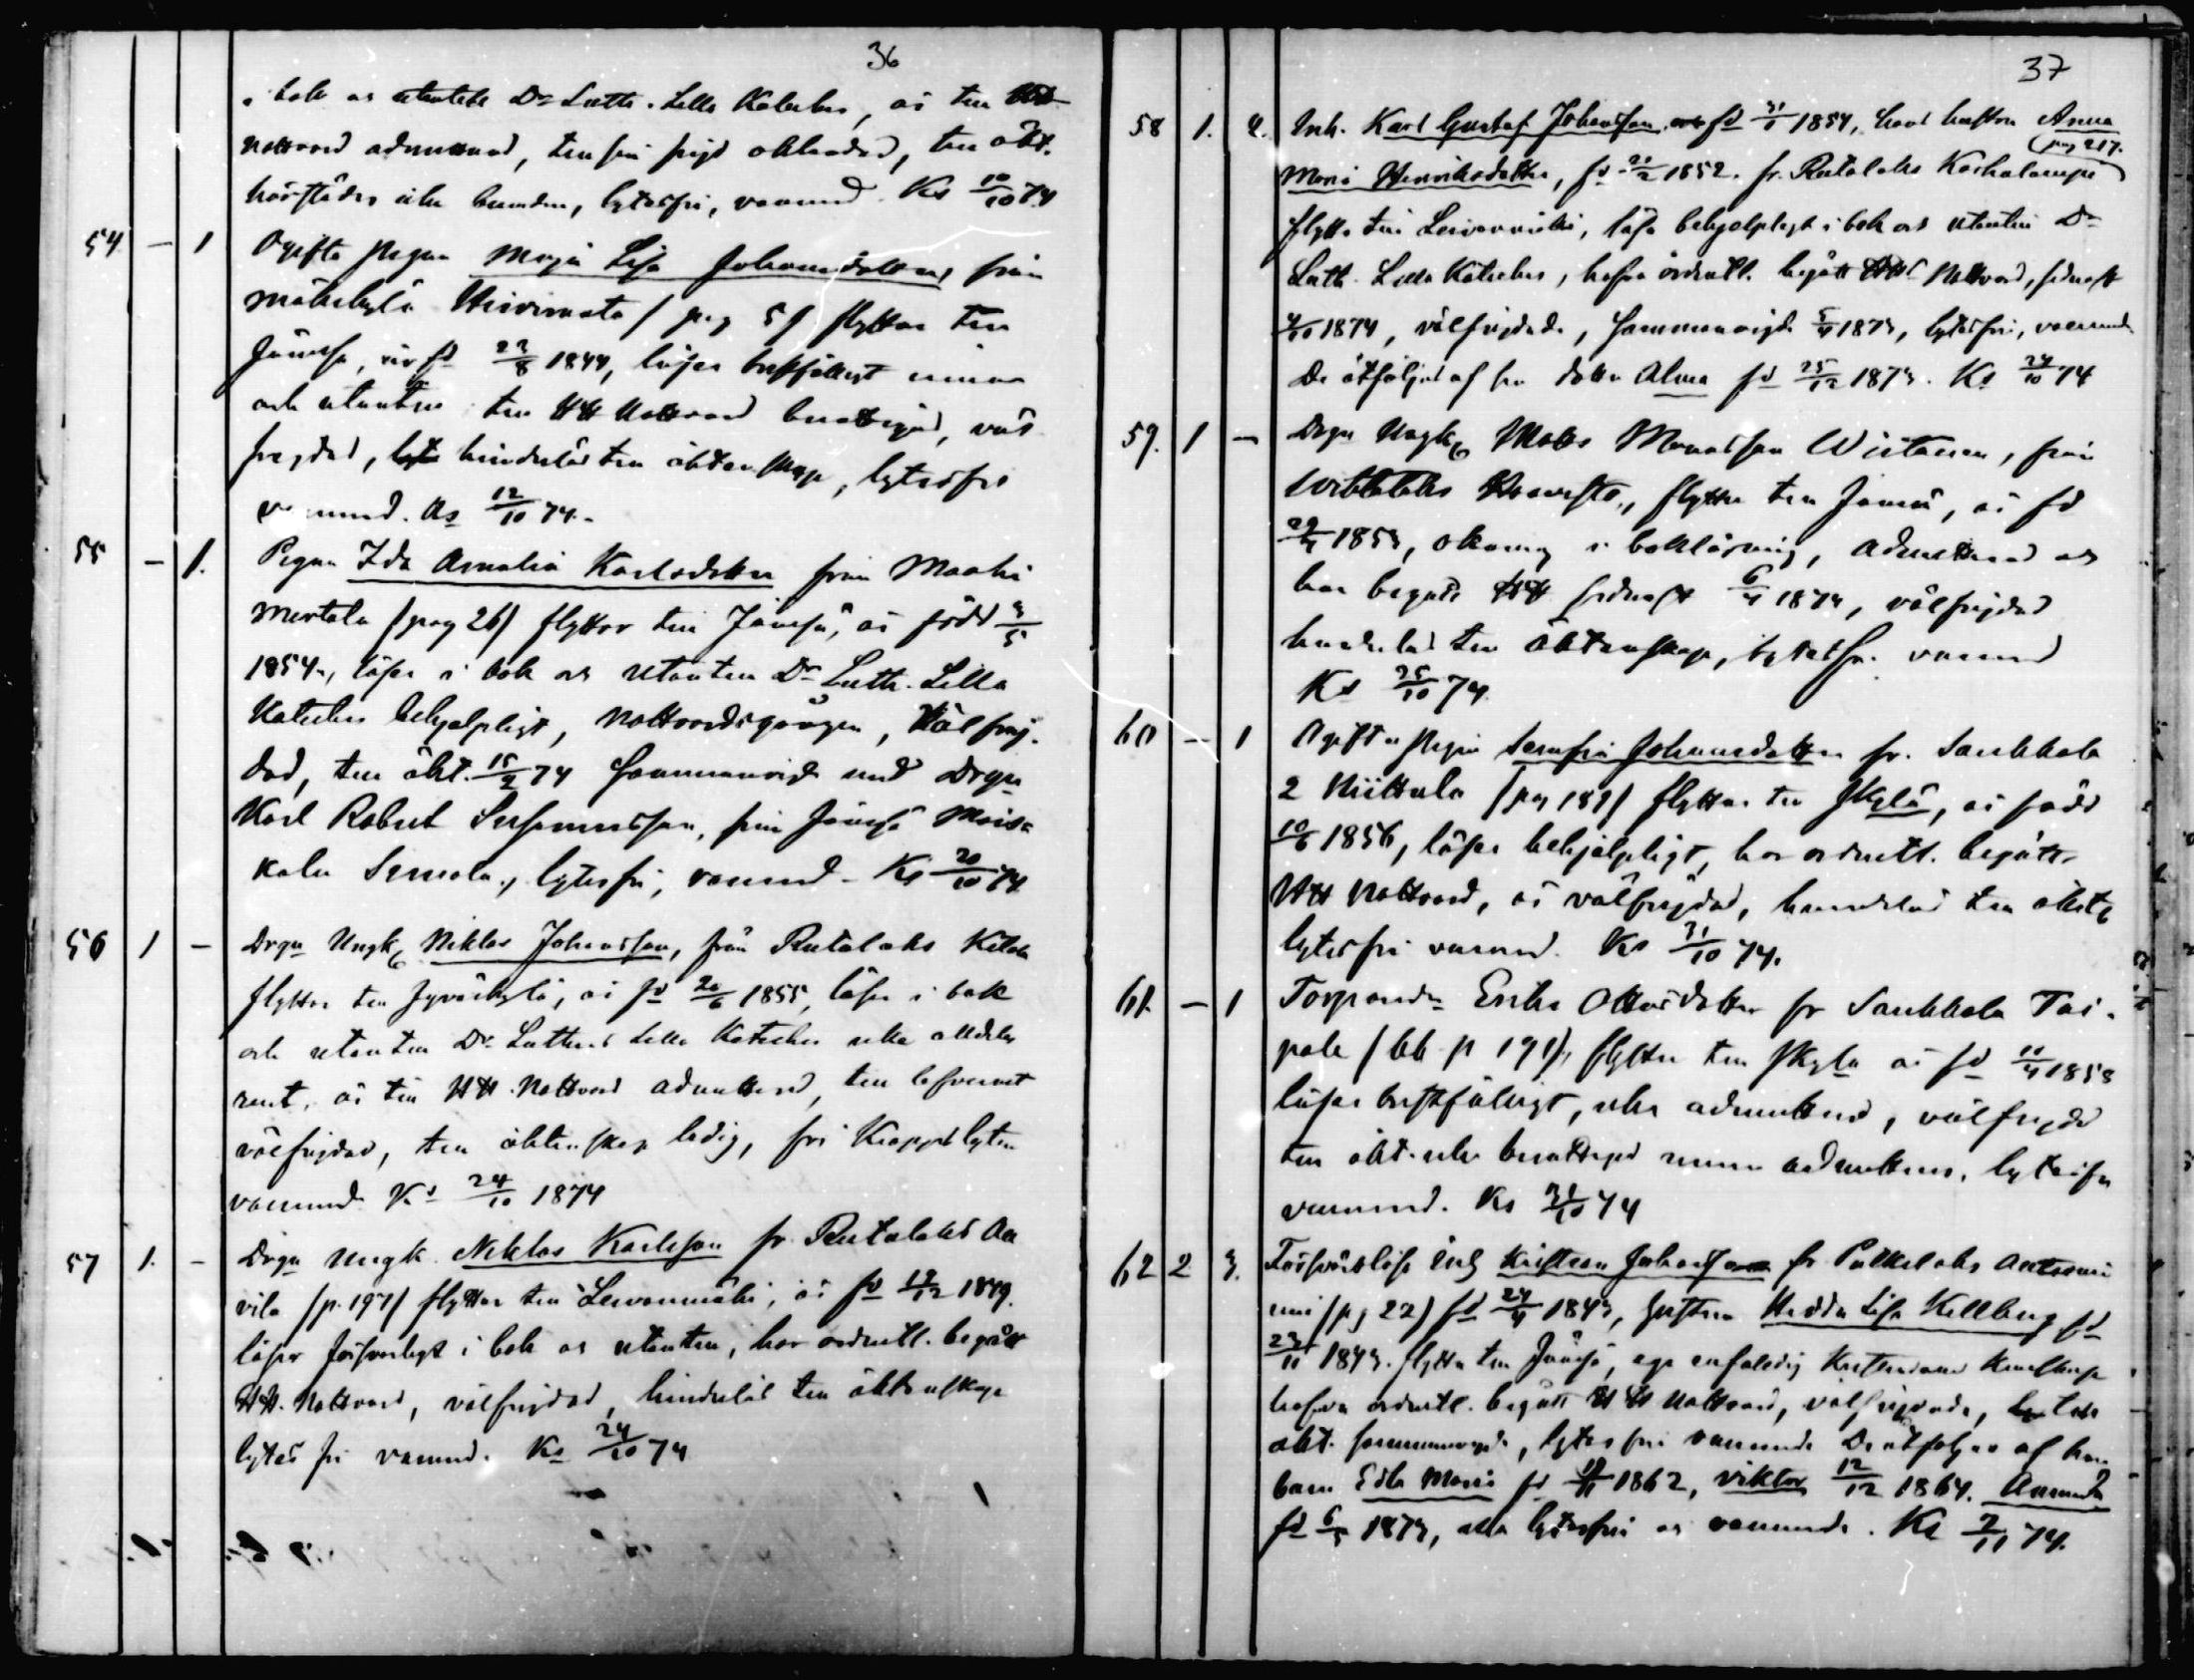 36
i bok och utantill Dr Luth. Lilla Kateches, är till HH
Nattvard admitterad, till sin frejd oklandrad, till äkt.
härstädes icke bunden, lytesfri, vaccined. Ks 10/10 74
54 — 1 Ogifta pigan Maja Lisa Johansdotter från
Mäkikylä Hirvimata (pag 5) flyttar till
Jämsä, är fd 23/8 1844, läser bristfälligt innan
och utantill till HH Nattvard berättigad, väl
frejdad, hinderlös till äktenskap, lytesfri
vaccined. As 12/10 74.
55 — 1. Pigan Ida Amalia Karlsdotter från Maahi
Mertala (pag 26) flyttar till Jämsä, är född 3/5
1854, läser i bok och utantill Dr Luth. Lilla
Kateches behjelpligt, Nattvardsgången, Väl frej-
dad, till äkt. 15/2 74 Sammanvigd med Drgn
Karl Robert från Jämsä
kala lytesfri, vaccined. Ks 20/10 74
56 1 — Drgn Ungk. Niklas Johansson, från Rutalaks Ketola
flyttar till Jyväskylä, är fd 20/6 1855, läser i bok
och utantill Dr Luthers Lilla Kateches icke alldeles
rent, är till HH. Nattvard admitterad, till lefvernet
välfrejdad, till äktenskap ledig, fri Kroppslyten
vaccined Ks 24/10 1874
57 1. — Drgn Ungk. Niklas Karlsson fr. Rutalaks Aa
vila (p. 197) flyttar till Leivonmäki, är fd 12/12 1849.
läser försvarligt i bok och utantill, har ordentl. begått
HH. Nattvard, välfrejdad, hinderlös till äktenskap
lytes fri vaccined. Ks 24/10 74
37
58 1. 2. Inh. Karl Gustaf Johansson fd 31/1 1854, med hustru Anna
pag 217.
Maria Henriksdotter, fd 21/2 1852. fr. Rutalaks Koskelampi
flytta till Leivonmäki, läsa behjelpligt i bok och utantill Dr
Luth. Lilla Kateches, hafva ordentl. begått HH Nattvard, sednast
4/10 1874, välfrejdade, Sammanvigde 5/4 1873, lytesfri, vaccinerade
De åtföljas af sin dotter Alma fd 25/12 1873. Ks 24/10 74
59. 1 — Drgn Ungk. Mats Wirtanen, från
flyttar till Jämsä, är fd
29/4 1853, okunnig i bokläsning, Admitterad och
har begått HH sednast 6/4 1874, välfrejdad
hinderlös till Äktenskap, lytesfri vaccined
Ks 25/10 74.
60 — 1 Ogifta pigan Serafia Johansdotter fr. Sarkkola
2 Niittula (pag 189) flyttar till JKylä, är född
10/6 1856, läser behjelpligt, har ordentl. begått
HH Nattvard, är välfrejdad, hinderlös till äktsk.
lytesfri vaccined. Ks 31/10 74.
61. — 1 Torpared:r Erika Ottosdotter fr Sarkkola Tai-
pale (bb p 191), flyttar till JKyla är fd 11/4 1858
läser bristfälligt, icke admitterad, välfrejdad
till äkt. icke berättigad innan admitteras, lytesfri
vaccined. Ks 31/10 74
62 2 3. Försvarslöse Inh Kristian Johansson fr Putkilaks Auteenni
emi (pg 22) fd 24/4 1843, hustrun Hedda Lisa Kellberg fd
23/11 1843. flytta till Jämsä, ega enfaldig Kristendoms Kunskap
hafva ordentl. begått HH Nattvard, välfrejdade,
äkt. sammanvigde, lytes fri vaccinerade De åtföljas af sina
barn Edla Maria fd 1862, Viktor 12/12 1864. Amanda
fd 6/5 1873, alla lytesfri och vaccinerade. Ks 2/11 74.